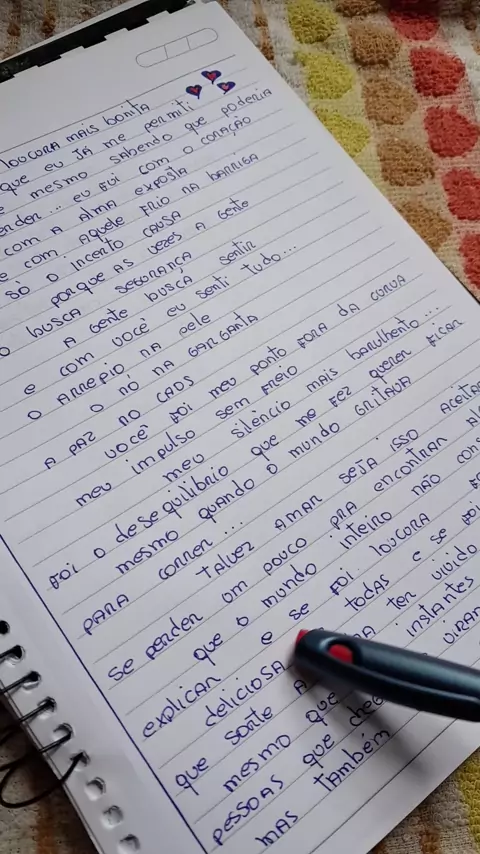 loucora mais bonita
que eu já me permiti
mesmo sabendo que poderia
eu fui com o coração
com a alma exposta
e com aquele frio na barriga
só o incerto causa
porque as vezes a gente
busca segurança
a gente busca sentir
e com você eu senti tudo...
o arrepio na pele
o nó na garganta
a paz no caos
você foi meu ponto fora da curva
meu impulso sem freio
meu silencio mais barulhento...
foi o desequilíbrio que me fez querer ficar
mesmo quando o mundo gritava
para correr...
talvez amar seja isso
se perder um pouco pra encontrar
que o mundo inteiro não
explicar e se foi loucora
deliciosa todas e se
que sorte a ter vivido
mesmo que instantes
pessoas que
mas também